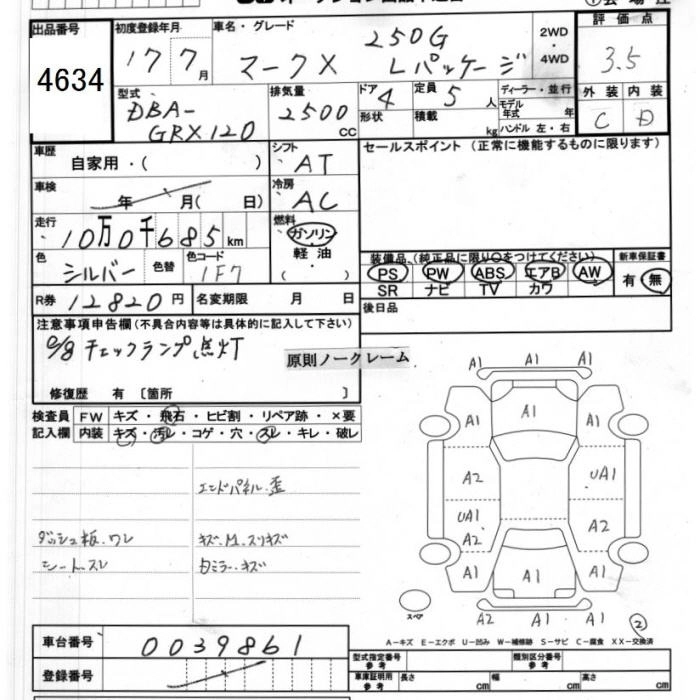 出品番号
4634
初度登録年月
17 7月
車名・グレード
マークX 250G Lパッケージ
2WD
・
4WD
評価点
3.5
外装 内装
C D
型式
DBA-
GRX120
排気量
2500 CC
ドア 4
形状
定員 5人
積載 kg
ディーラー・並行
モデル年式 年
ハンドル 左・右
車歴
自家用・( )
シフト
AT
車検
年 月( 日)
冷房
AC
セールスポイント(正常に機能するものに限ります)
走行
10万0千685km
燃料
ガソリン
軽油
( )
色
シルバー
色替
色コード
1F7
装備品(純正品に限り○をつけてください)
PS PW ABS エアB AW
SR ナビ TV カワ
新車保証書
有・無
R券 12820円
名変期限 月 日
後日品
注意事項申告欄(不具合内容等は具体的に記入して下さい)
チェックランプ点灯
原則ノークレーム
修復歴 有〔箇所 〕
検査員
記入欄
FW キズ・飛石・ヒビ割・リペア跡・×要
内装 キズ・汚レ・コゲ・穴・スレ・キレ・破レ
エンドパネル歪
ダッシュ板.ワレ
シート.スレ
キズ.M.スリキズ
勾ミラーキズ
A1 A1 A1
A1 A1 A1
A2 UA1
UA1
A2 A2
A1 A1 A1
A2 A1 A1
スペア
2
A-キズ E-エクボ U-凹み W-補修跡 S-サビ C-腐食 XX-交換済
車台番号
0039861
登録番号
型式指定番号
参考
類別区分番号
参考
車庫証明用
参考
長さ cm 幅 cm 高さ cm